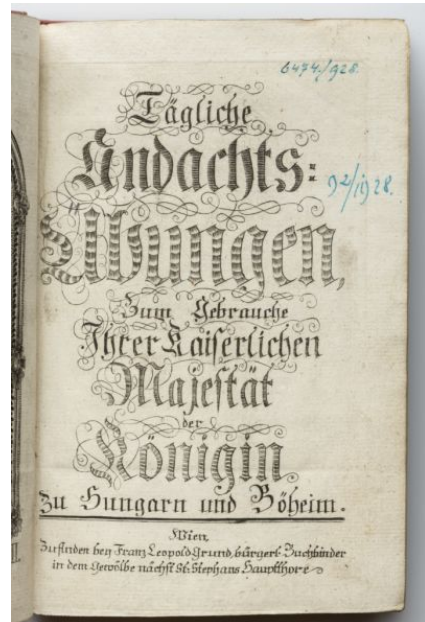 6474/928.
Tägliche
Andachts=
92/1928.
Übungen,
Zum Gebrauche
Ihrer Kaiserlichen
Majestät
der
Königin
zu Hungarn und Böheim.
Wien
Zu finden bey Franz Leopold Grund, bürgerl. Buchbinder
in dem Gewölbe nächst St. Stephans Haupthore